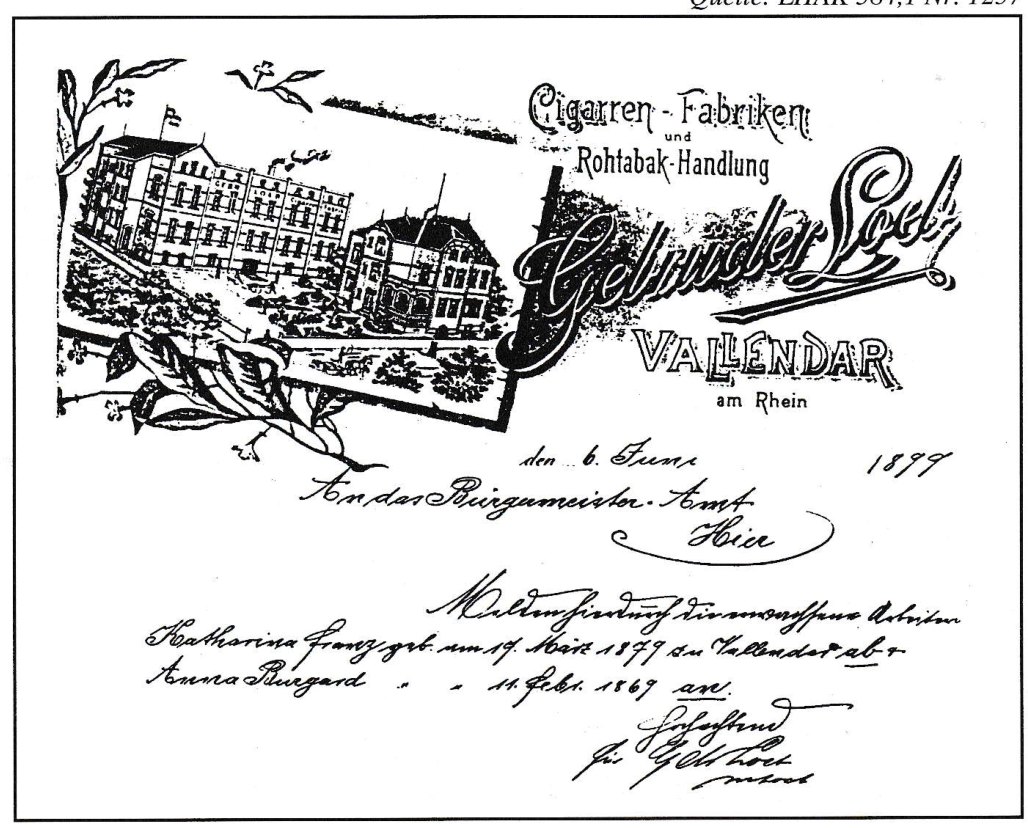 Quelle: LHAK 587,1 Nr. 1257
Cigarren-Fabriken
und
Rohtabak-Handlung
Gebrüder Loeb
VALLENDAR
am Rhein
GEBR LOEB
den 6. Juni 1899
An das Bürgermeister-Amt
Hier
Melden hierdurch die erwachsene Arbeiterin
Katharina Franz geb. am 19. März 1879 zu Vallendar ab +
Anna Burgard " " 11. Febr. 1869 an.
Hochachtend
für Gebr Loeb